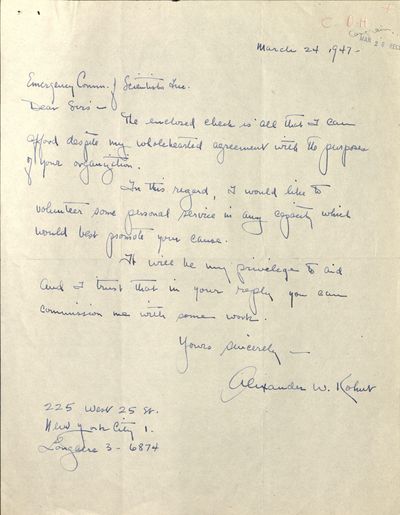 C O H
MAR 26 REC'D
March 24, 1947 -
Emergency Comm. of Scientists Inc.
Dear Sirs -
The enclosed check is all that I can
afford despite my wholehearted agreement with the purpose
of your organization.
In this regard, I would like to
volunteer some personal service in any capacity which
would best promote your cause.
It will be my privilege to aid
and I trust that in your reply you can
commission me with some work.
Yours sincerely -
Alexander W. Kohut
225 West 25 St.
New York City 1.
Longacre 3 - 6874